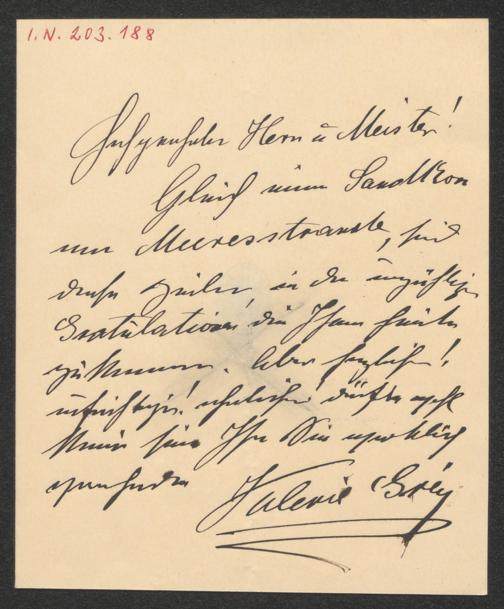 I.N. 203.188
Hochverehrter Herr u Meister!
Gleich einem Sandkorn
am Meeresstrande, sind
diese Zeilen in der unzähligen
Gratulationen die Ihnen heute
zukommen. Aber herzlicher!
aufrichtiger! ehrlicher! dürfte wohl
keine sein Ihr Sie wirklich
verehrenden
Valerie Gréy